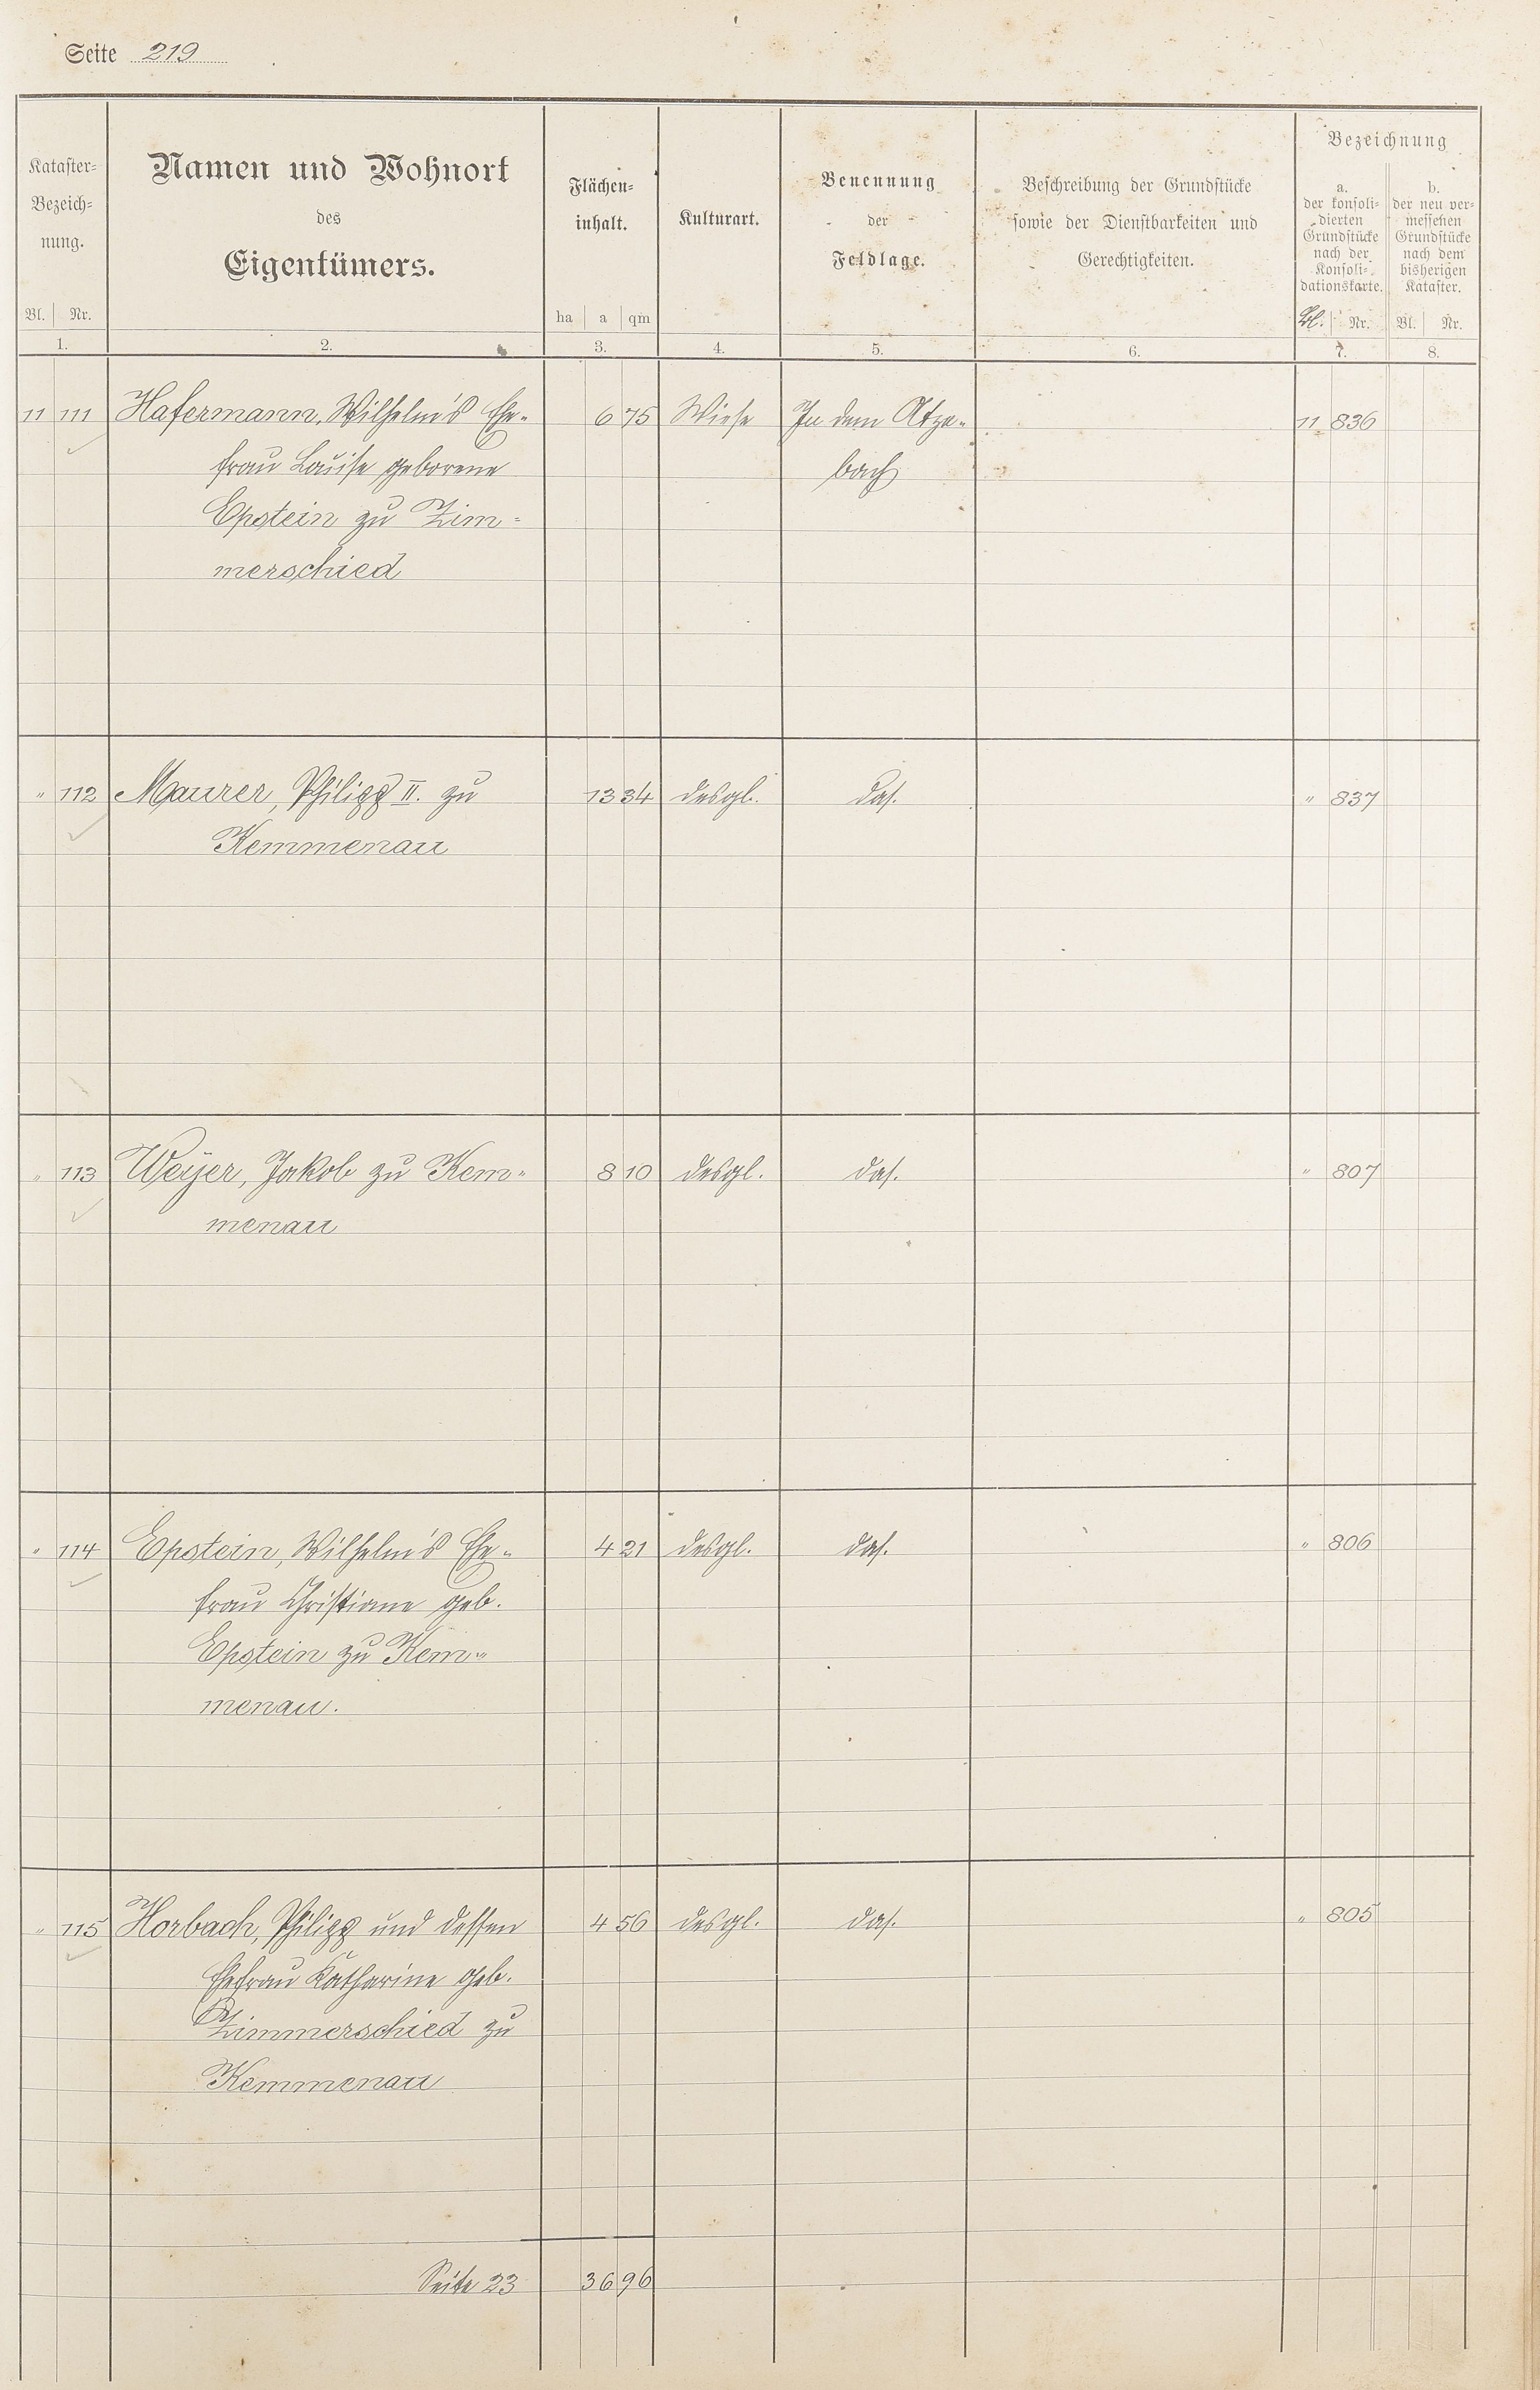 Seite 219
Kataster-
Bezeich-
nung.
Bl. Nr.
1.
Namen und Wohnort
des
Eigentümers.
2.
Flächen-
inhalt.
ha a qm
3.
Kulturart.
4.
Benennung
der
Feldlage.
5.
Beschreibung der Grundstücke
sowie der Dienstbarkeiten und
Gerechtigkeiten.
6.
Bezeichnung
a.
der konsoli-
dierten
Grundstücke
nach der
Konsoli-
dationskarte.
Bl. Nr.
7.
b.
der neu ver-
messenen
Grundstücke
nach dem
bisherigen
Kataster.
Bl. Nr.
8.
11 111 Hafermann, Wilhelm's Ehe- 6 75 Wiese In dem Atze- 11 836
frau Lauise geborene bach
Epstein zu Zim-
merschied
" 112 Maurer, Philipp II. zu 13 34 desgl. das. " 837
Kemmenau
" 113 Weyer, Jakob zu Kem- 8 10 desgl. das. " 807
menau
" 114 Epstein, Wilhelm's Ehe- 4 21 desgl. das. " 806
frau Christiane geb.
Epstein zu Kem-
menau.
" 115 Horbach, Philipp und dessen 4 56 desgl. das. " 805
Ehefrau Katharine geb.
Zimmerschied zu
Kemmenau
Seite 23 36 96